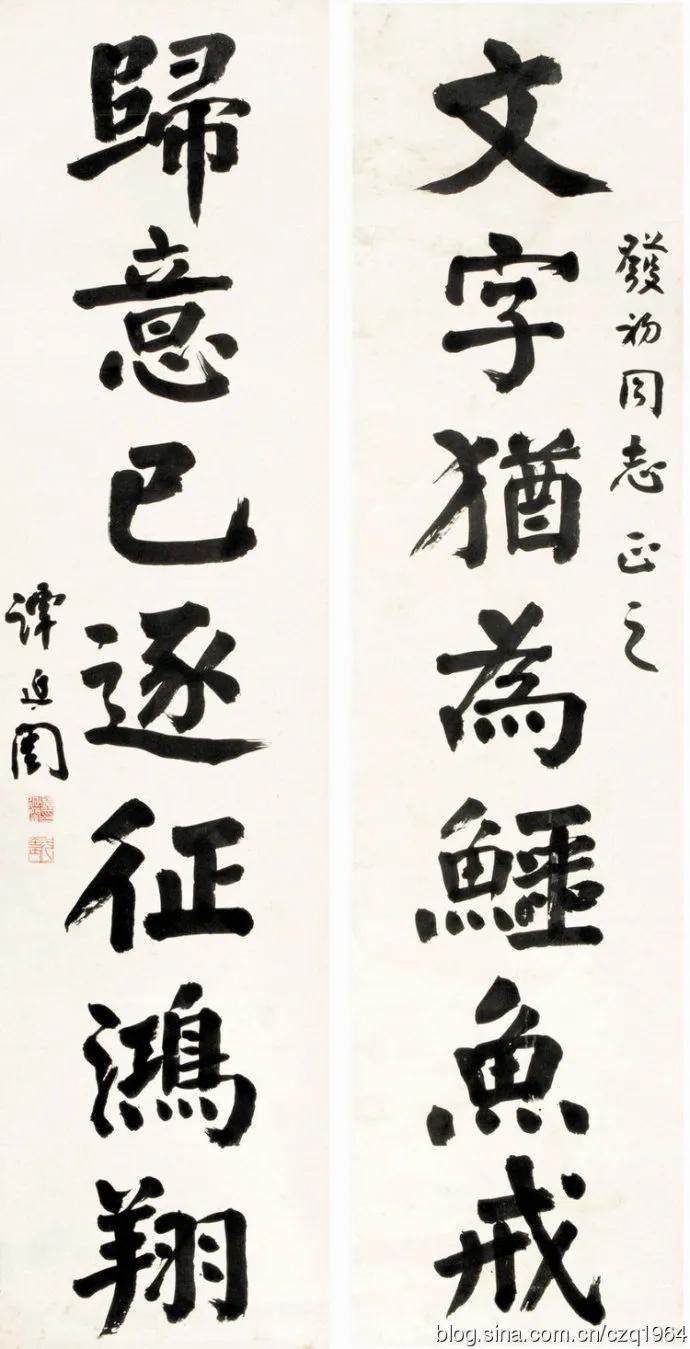 發初同志正之
文字猶為鱷魚戒
歸意已逐征鴻翔
譚延闓
blog.sina.com.cn/czq1964